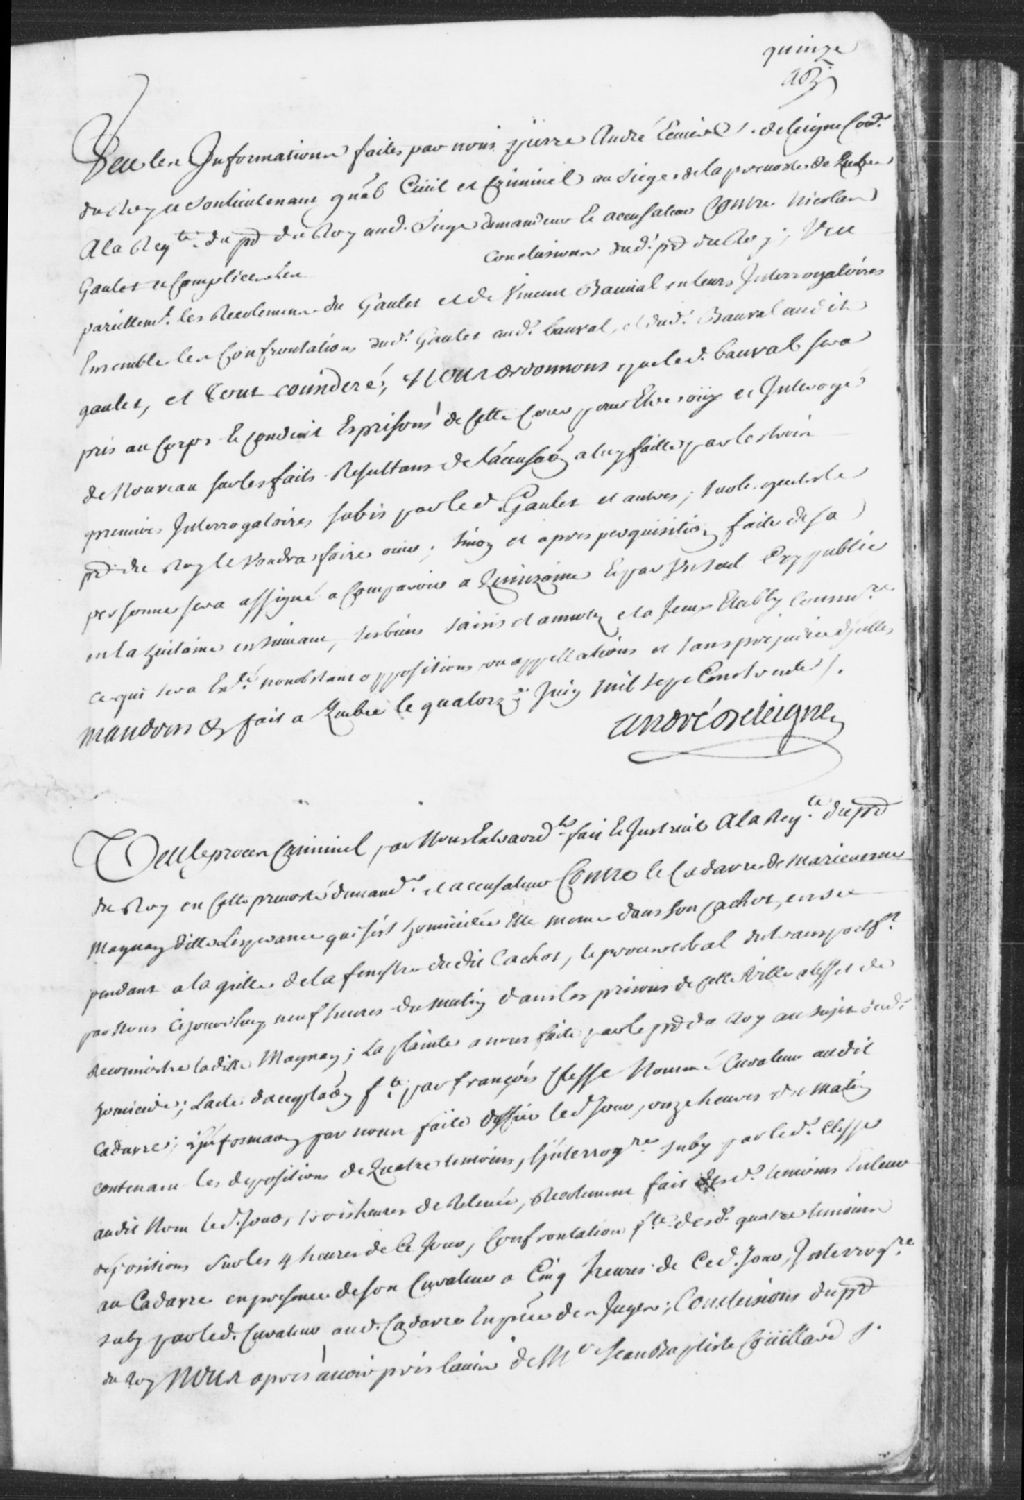 quinze
Veu les Informations faites par nous pierre André Ecuier s. de leigne Conr.
du Roy et Son lieutenant gnãl Civil et Criminel au siege de la prevosté de Quebec
A la Reqte. du pr du Roy aud. Siege demandeur et accusateur Contre Nicolas
Gaulet et Complices Les conclusions dud. pr du Roy ; Veu
pareillemt. les Recolemens du Gaulet et de Vincent Bauval en leurs Interrogatoires
Ensemble les Confrontations dud. Gaulet aud. bauval, et dud. Bauval audit
gaulet, et tout consideré, Nous ordonnons que led. bauval sera
pris au Corps et conduit Es prisons de Cette Cour pour Estre oüy et Interrogé
de Nouveau sur les faits Resultans de l'accusãon a luy faitte par les trois
premiers Interrogatoires subis par led. Gaulet et autres, sur lesquels le
pr du Roy le voudra faire ouir ; sinon et apres perquisition faite de sa
personne sera assigné a Comparoir a Quinzaine et par un seul Cry public
en la huitaine ensuivant, ses biens saisis et annotez et a Iceux Etably Commre.
ce qui sera Exé. nonobstant oppositions ou appellations et sans prejudice d'jcelles
Mandons &c fait a Quebec le quatorze Juin Mil Sept Cens trente /.
André de leigne
Veu le proces Criminel par Nous Extraordre. fait et Instruit A la Reqte. du pr
du Roy en Cette prevosté demandr. et accusateur Contre le Cadavre de Marie
Magnan ditte Lesperance qui s'est homicidée Elle mesme dans son Cachot, en se
pendant a la grille de la fenestre dudit Cachot, le procez verbal du transport ft.
par Nous Ce jourd'huy neuf heures du Matin dans les prisons de Cette Ville a l'effet de
Reconnoitre laditte Magnan ; La plainte a nous faite par le pr du Roy au sujet dud.
homicide ; L'acte d'acceptãon fte. par françois Clesse Nommé Curateur audit
Cadavre ; Informãon par nous faite led. Jour, onze heures du Matin
contenant les depositions de Quatre temoins, L'interrogre. suby par led. Clesse
audit Nom led. Jour, trois heures de Relevée, Recolement fait desd. temoins En leurs
depositions sur les 4 heures de Ce Jour, Confrontation fte. desd. quatre temoins
au Cadavre en presence de son Curateur a Cinq heures de Ced. Jour, Interrogre.
suby par led. Curateur aud. Cadavre En pnce des Juges ; Conclusions du pr
du Roy NOUS apres avoir pris l'avis de Me Jean Baptiste Coüillard s.